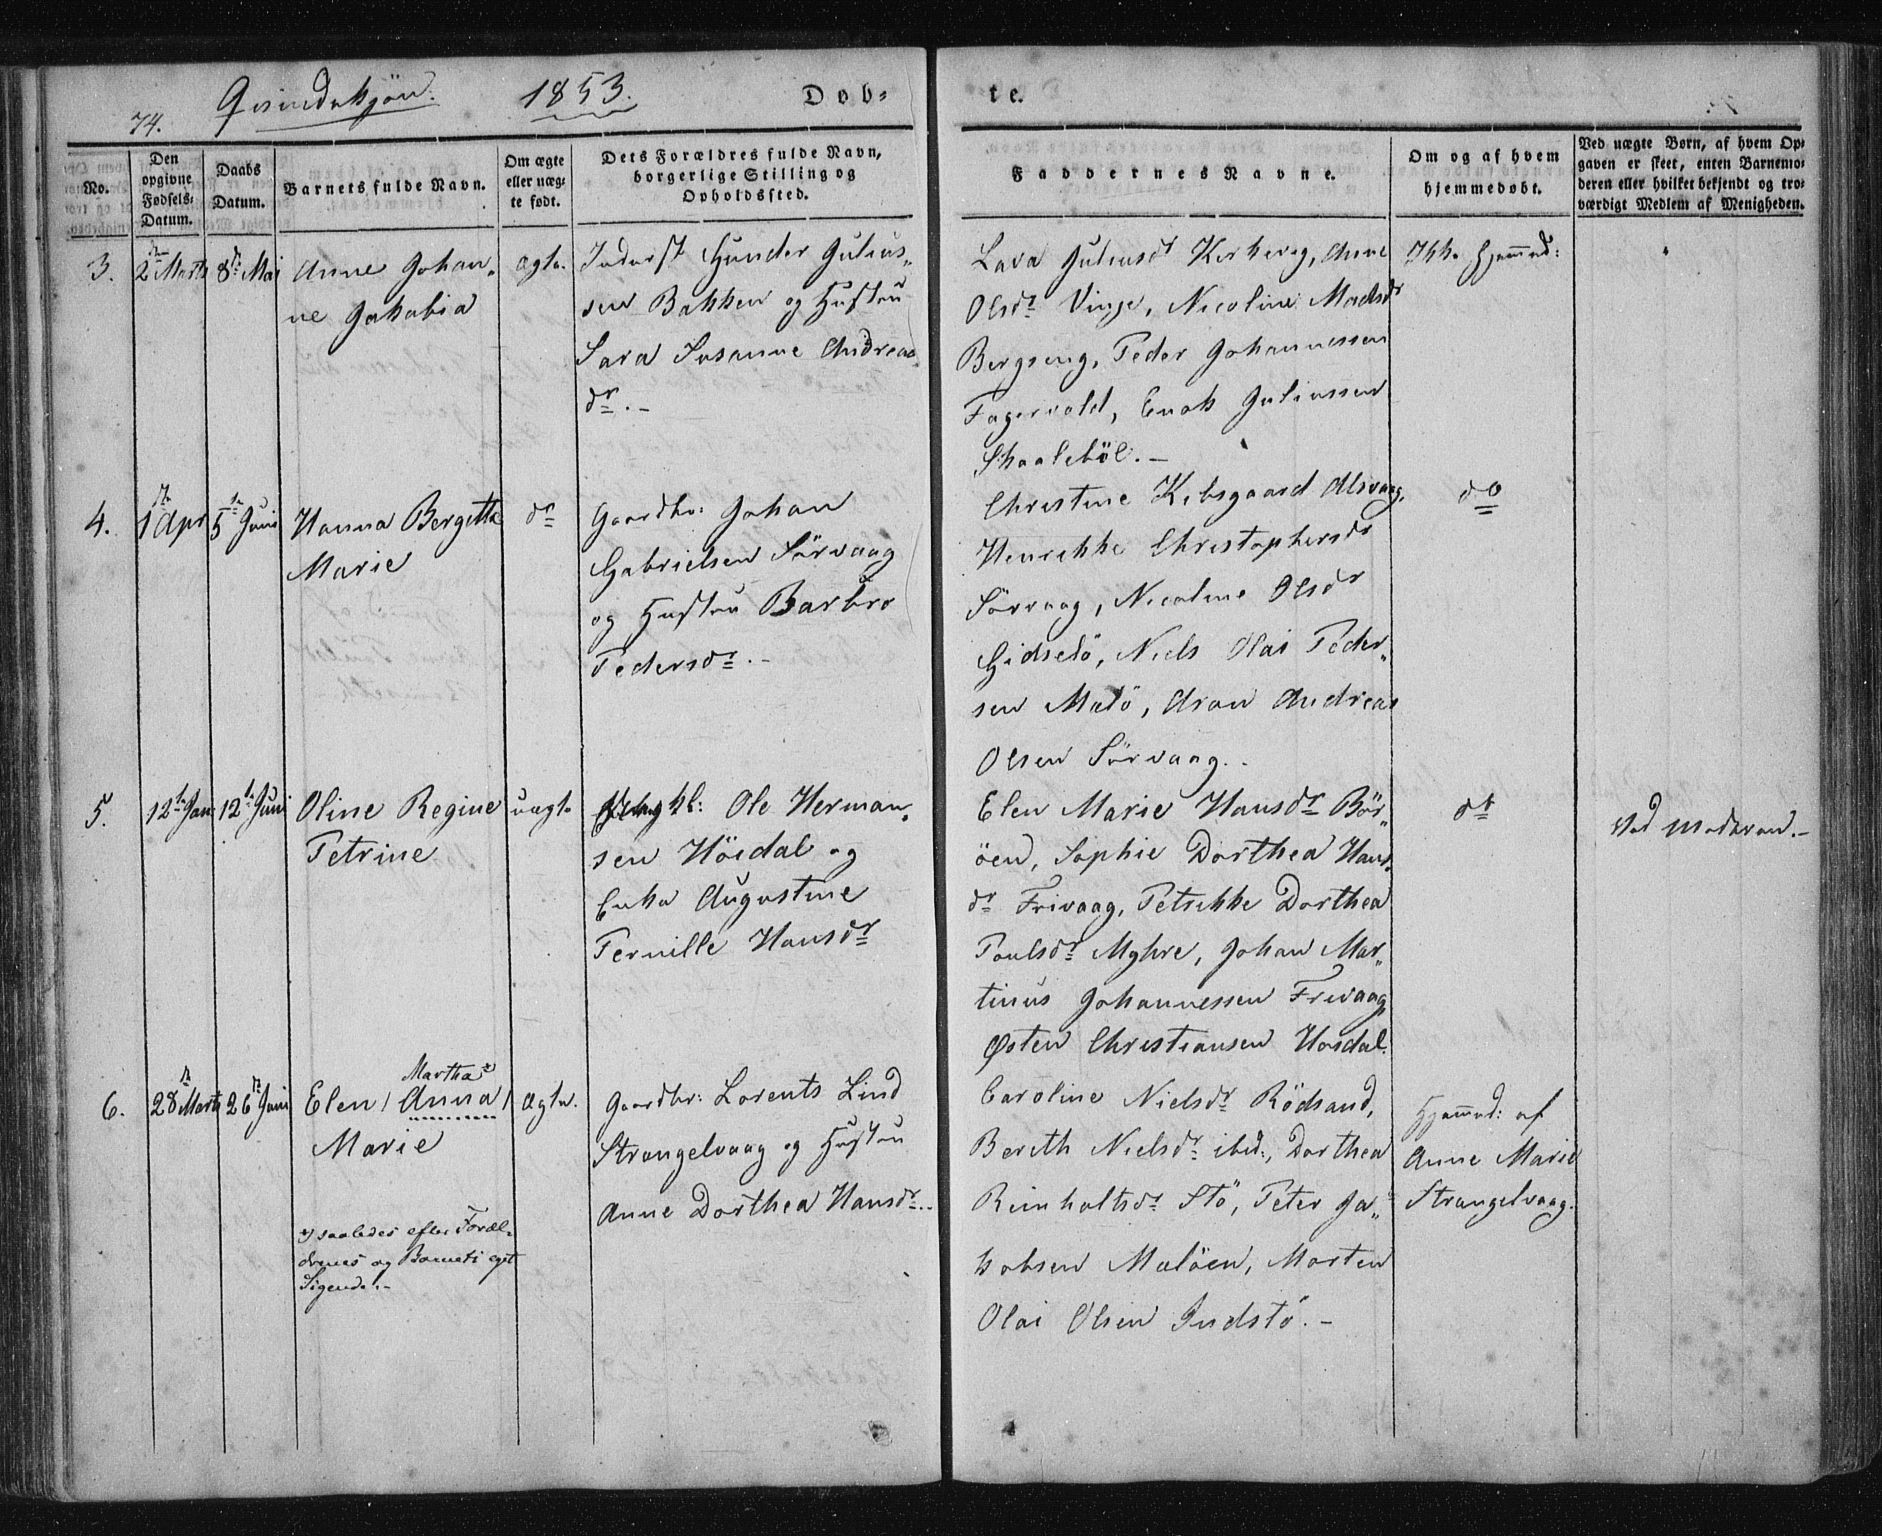 74.
Qvindekjön.
1853.
Döb-
te.
No.
Den opgivne Fødsels-Datum.
Daabs Datum.
Barnets fulde Navn.
Om ægte eller uægte født.
Dets Forældres fulde Navn, borgerlige Stilling og Opholdssted.
Faddernes Navne.
Om og af hvem hjemmedøbt.
Ved uægte Børn, af hvem Opgaven er skeet, enten Barnemoderen eller hvilket bekjendt og troværdigt Medlem af Menigheden.
3.
2 Marts
8de Mai
Anne Johan-
ne Jakobia
ægte.
Inderst Hunder Julius-
sen Bakken og Hustru
Sara Susanne Andreas
dr.-
Lava Juliusdr Kirkevig, Anne
Olsdr Vinje, Nicoline Madsdr
Bergseng, Peder Johannessen
Fagervold, Enok Juliussen
Skaaleböl.-
Ikke hjemmed:
4.
1 Apr
5te Juni
Hanna Bergitte
Marie
do
Gaardbr: Johan
Gabrielsen Sörvaag
og Hustru Barbro
Pedersdr.-
Christine Kibsgaard Alsvaag,
Henrikke Christophersdr
Sörvaag, Nicoline Olsdr
Gidselö, Niels Olai Peder-
sen Malö, Aron Andreas
Olsen Sörvaag.
do
5.
12te Jan
12te Juni
Oline Regine
Petrine
uægte
Ole Herman-
sen Höidal og
Enke Augustine
Pernille Hansdr
Elen Marie Hansdr Bör-
öen, Sophie Dorthea Hans-
dr Frivaag, Petrikke Dorthea
Poulsdr Myhre, Johan Mar-
tinus Johannessen Frivaag
Østen Christiansen Hoidal.
do
Ved Moderen.-
6.
28 Marts
26 Juni
Martha x)
Elen / Anna /
Marie
x) saaledes efter Foræl-
drenes og Barnets eget
Sigende.-
ægte.
Gaardbr: Lorents Lind
Strengelvaag og Hustru
Anne Dorthea Hansdr.-
Caroline Nielsdr Rödsand,
Bereth Nielsdr ibid:, Dorthea
Reinholtsdr Stö, Peter Ja-
kobsen Malöen, Morten
Olai Olsen Indstö.-
Hjemmed: af
Anne Marie
Strengelvaag.